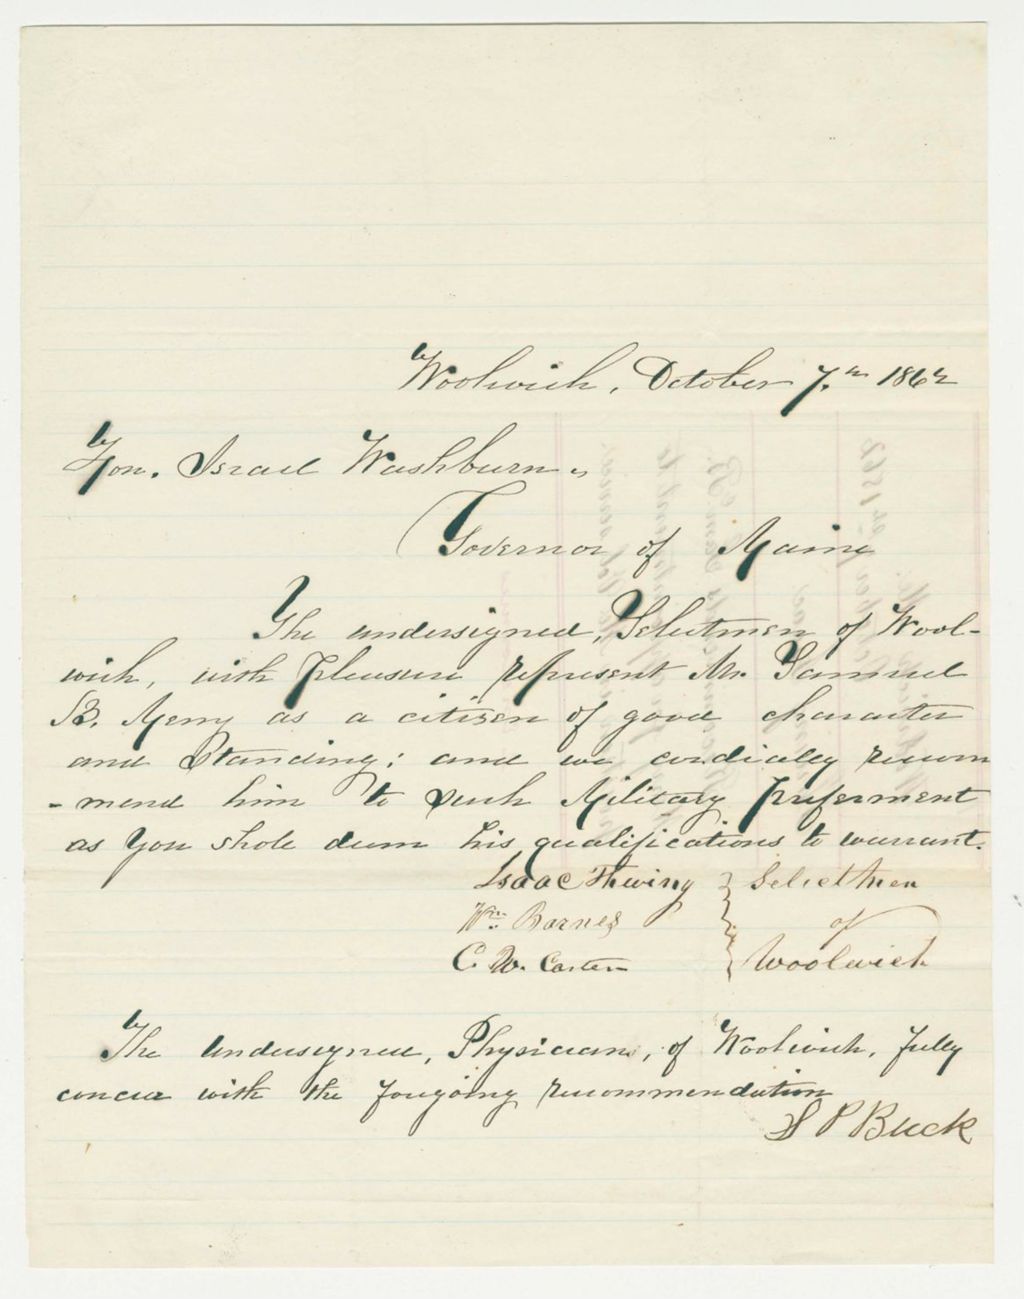 Woolwich, October 7.th 1862
Hon. Israel Washburn,
Governor of Maine
The undersigned, Selectmen of Wool-
wich, with pleasure represent Mr. Samuel
B. Merry as a citizen of good character
and Standing; and we cordialey recom
-mend him to such Military preferment
as you shole deem his qualifications to warrant.
Isaac Thwing } Selectmen
Wm. Barnes } of
C. W. Carter } Woolwich
The Undersigned, Physician, of Woolwich, fully
concur with the forgoing recommendation
S P Buck